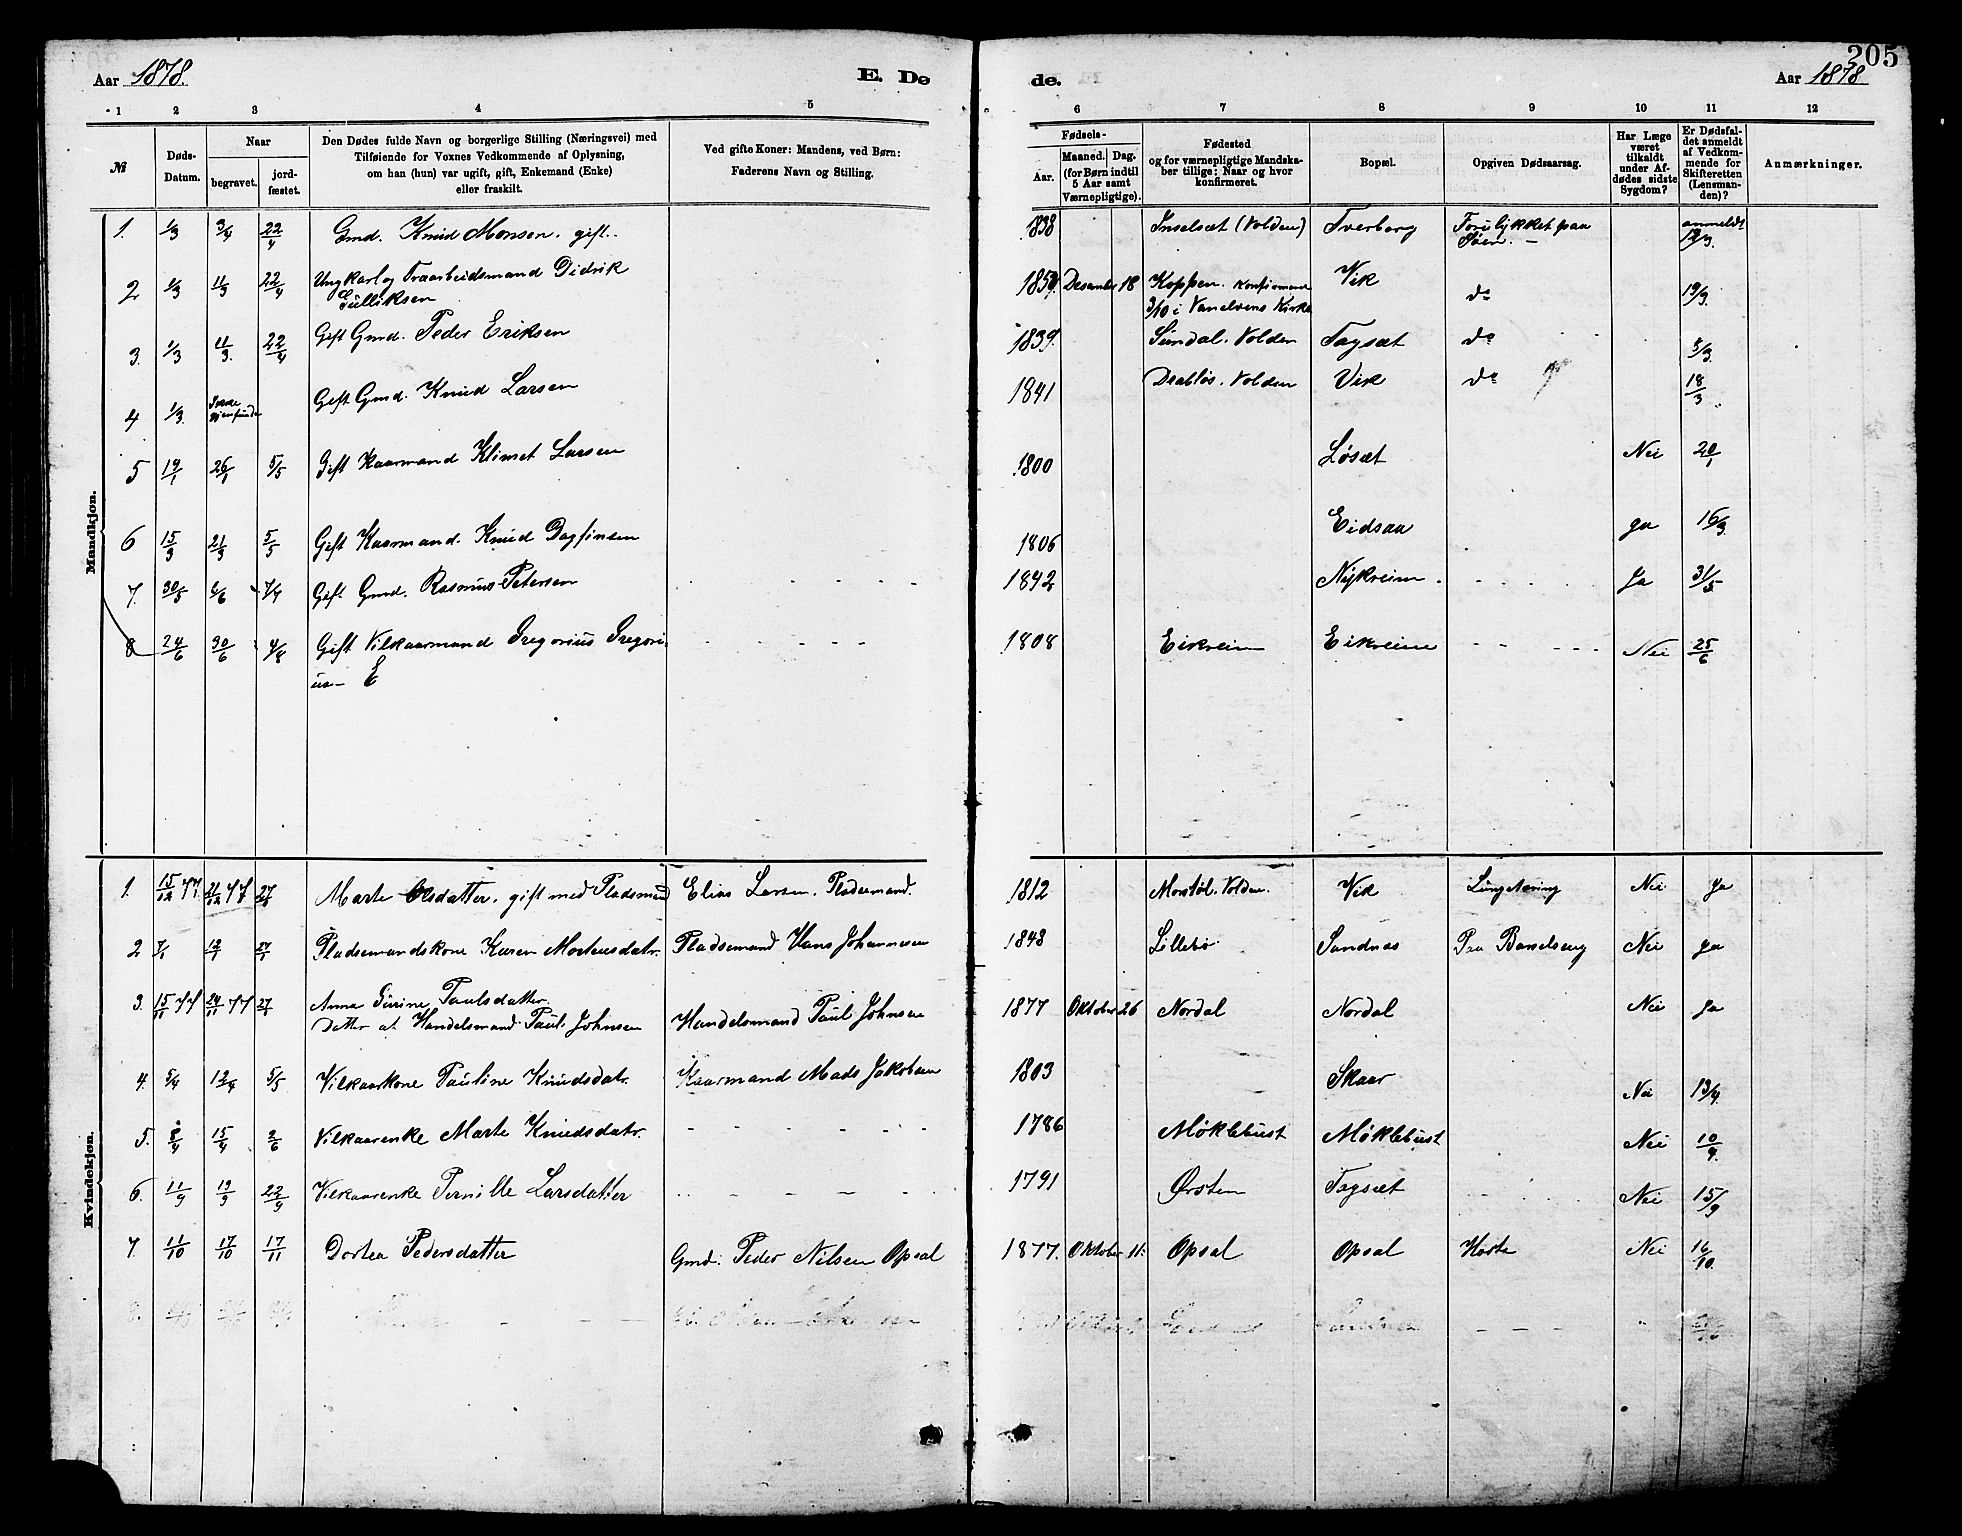 205
Aar 1878. E. Dø de. Aar 1878
1 2 3 4 5 6 7 8 9 10 11 12
№
Døds-Datum.
Naar
begravet.
jord-fæstet.
Den Dødes fulde Navn og borgerlige Stilling (Næringsvei) med
Tilføiende for Voxnes Vedkommende af Oplysning,
om han (hun) var ugift, gift, Enkemand (Enke)
eller fraskilt.
Ved gifte Koner: Mandens, ved Børn:
Faderens Navn og Stilling.
Fødsels-
Aar.
Maaned. Dag.
(for Børn indtil
5 Aar samt
Værnepligtige).
Fødested
og for værnepligtige Mandska-
ber tillige: Naar og hvor
konfirmeret.
Bopæl.
Opgiven Dødsaarsag.
Har Læge
været
tilkaldt
under Af-
dødes sidste
Sygdom?
Er Dødsfal-
det anmeldt
af Vedkom-
mende for
Skifteretten
(Lensman-
den)?
Anmærkninger.
Mandkjøn.
1. 1/3 3/4 22/4 Gmd. Knud Monsen. gift. 1838 Inselsæt (Volden) Tverberg Forulykket paa
Søen. — anmeldt
12/3.
2 1/3 11/3 22/4 Ungkarl og Træarbeidsmand Didrik
Gulliksen 1854 Desember 18 Koppen. Konfirmeret
3/10 i Vanelvens Kirke Vik do 19/3.
3. 1/3 11/3. 22/4 Gift Gmd. Peder Eriksen 1839. Sundal. Volden Tagsæt do 5/3.
4 1/3. Ikke
gjenfunden Gift Gmd. Knud Larsen 1841 Drabløs. Volden Vik do 18/3
5 19/1 26/1 5/5 Gift Kaarmand Klimet Larsen 1800 Løsæt Nei 20/1
6 15/3 21/3 5/5 Gift Kaarmand. Knud Dagfinsen 1806 Eidsaa ja 16/3.
7. 30/5 6/6 7/7 Gift Gmd. Rasmus Petersen 1842 Nykreim. Ja 31/5
8 24/6 30/6 4/8 Gift Vilkaarmand Gregorius Gregori-
us— E 1808 Eikreim Eikreim Nei 25/6
Kvindekjøn.
1. 15/12 77. 21/12 77 27/1 Marte Olsdatter, gift med Pladsmand Elias Larsen. Pladsemand. 1812 Morstøl. Volden. Vik Lungetæring Nei ja
2 7/1 12/1 27/1 Pladsemandskone Karen Mortensdatr. Pladsemand Hans Johannesen 1843 Lillebø Sandnæs Paa Barselseng Nei ja
3. 15/11 77 24/11 77 27/1 Anna Gurine Paulsdatter.
Datter af Handelsmand Paul Johnsen Handelsmand Paul Johnsen 1877 Oktober 26 Nordal Nordal Nei ja
4. 5/4 12/4 5/5 Vilkaarkone Pauline Knudsdatr. Kaarmand Mads Jakobsen 1803 Skaar Nei 13/4.
5. 8/4 15/4 2/6 Vilkaarenke Marte Knudsdatr. 1786 Møklebust Møklebust Nei 10/4.
6. 11/9 19/9 22/9 Vilkaarenke Pernille Larsdatter 1791 Ørsten Tagsæt Nei 15/9
7. 11/10 17/10 17/11 Dortea Pedersdatter Gmd. Peder Nilsen Opsal 1877. Oktober 11. Opsal Opsal Hoste Nei 16/10.